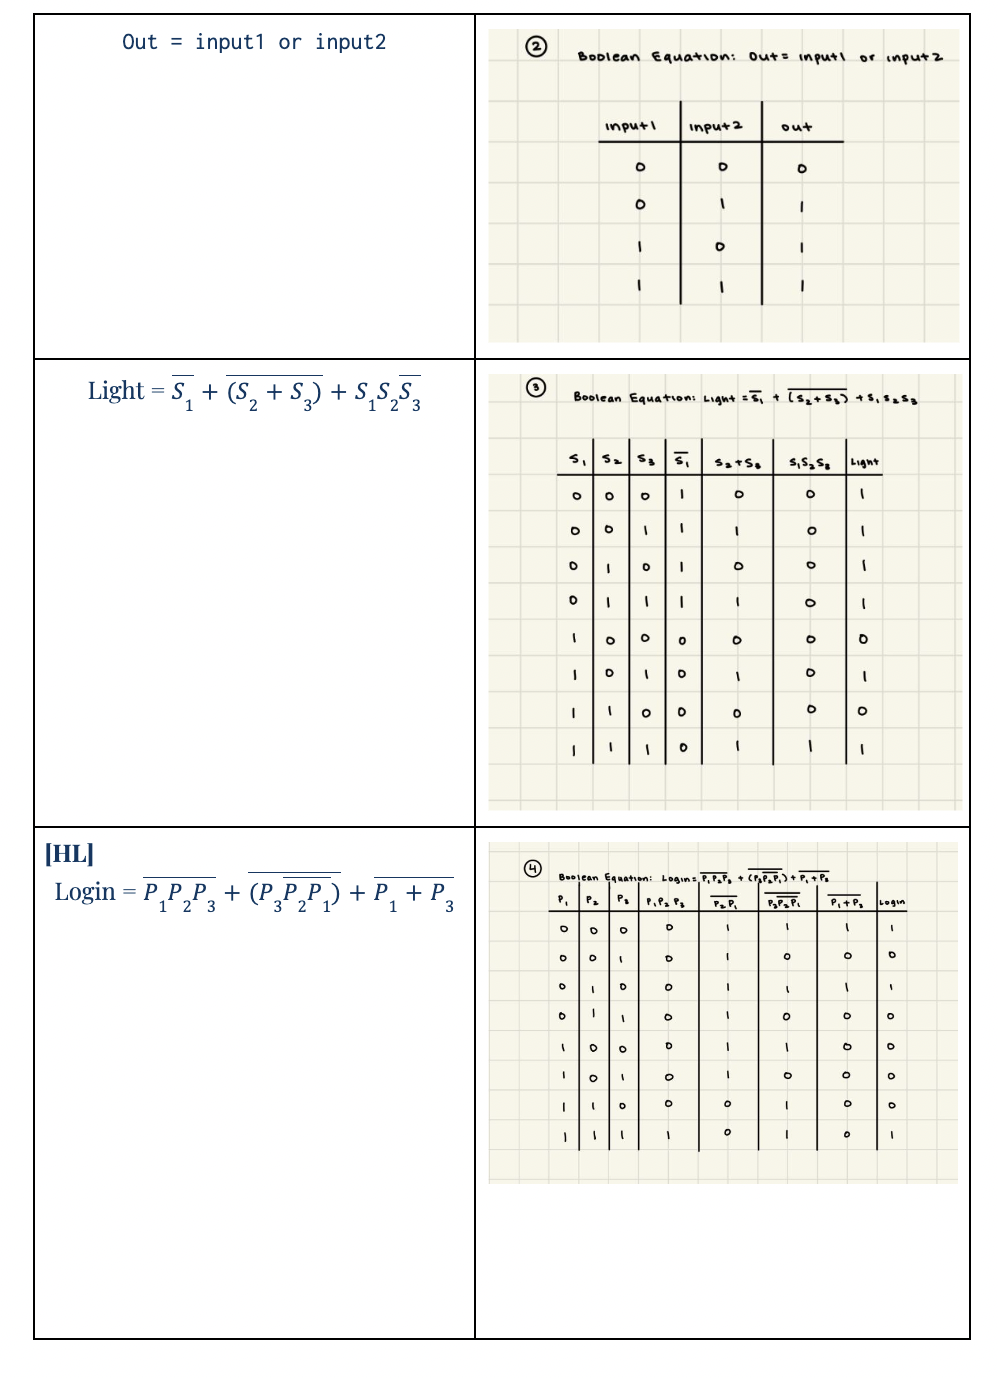 Out = input1 or input2
② Boolean Equation: Out = input1 or input2
input1 input2 out
0 0 0
0 1 1
1 0 1
1 1 1
Light = S̅₁ + (S₂ + S₃)̅ + S₁S₂S̅₃
③ Boolean Equation: Light = S̅₁ + (S₂+S₃)̅ + S₁S₂S₃
S₁ S₂ S₃ S̅₁ S₂+S₃ S₁S₂S₃ Light
0 0 0 1 0 0 1
0 0 1 1 1 0 1
0 1 0 1 0 0 1
0 1 1 1 1 0 1
1 0 0 0 0 0 0
1 0 1 0 1 0 1
1 1 0 0 0 0 0
1 1 1 0 1 1 1
[HL]
Login = P̅₁P̅₂P̅₃ + (P₃P̅₂P̅₁)̅ + P̅₁̅ ̅+̅ ̅P̅₃
④ Boolean Equation: Login = P̅₁P̅₂P̅₃ + (P₃P̅₂P̅₁)̅ + P̅₁̅+̅P̅₃
P₁ P₂ P₃ P₁P₂P₃ P̅₂P̅₁ P̅₃P̅₂P̅₁ P̅₁̅+̅P̅₃ Login
0 0 0 0 1 1 1 1
0 0 1 0 1 0 0 0
0 1 0 0 1 1 1 1
0 1 1 0 1 0 0 0
1 0 0 0 1 1 0 0
1 0 1 0 1 0 0 0
1 1 0 0 0 1 0 0
1 1 1 1 0 1 0 1